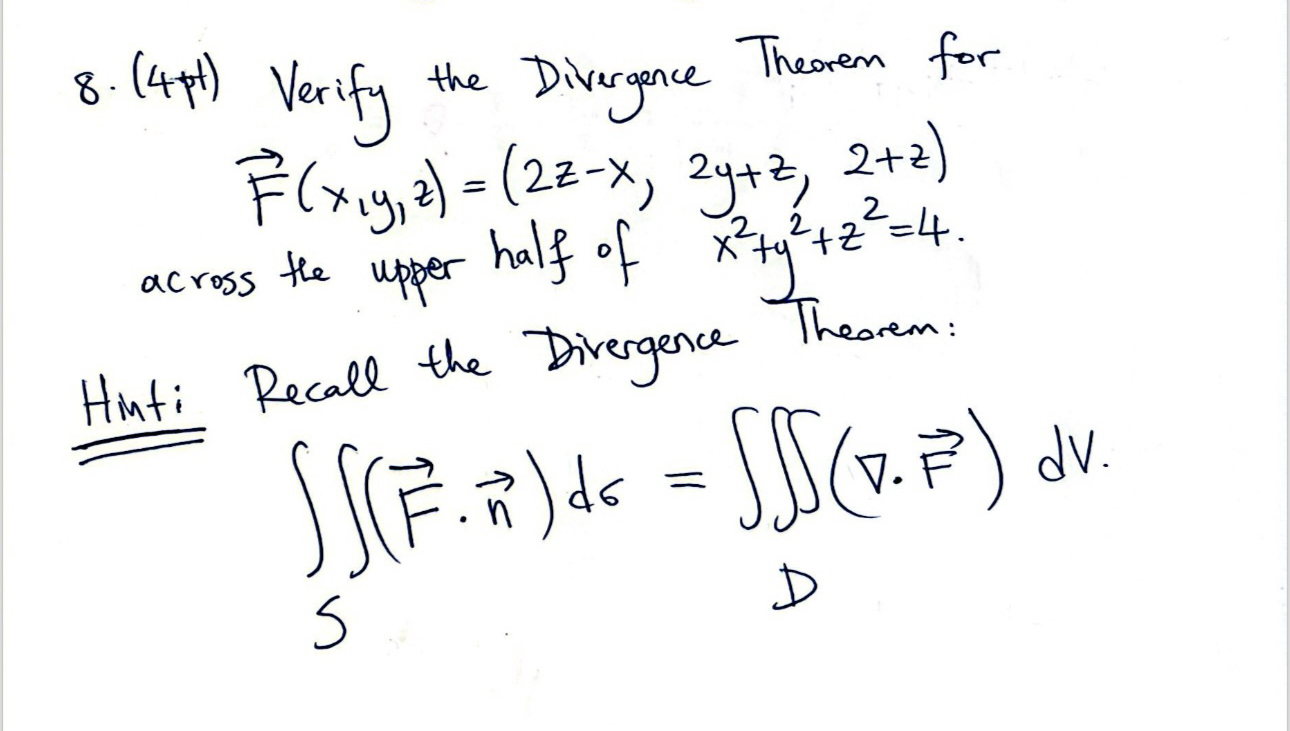 8. (4pt) Verify the Divergence Theorem for
F⃗(x,y,z) = (2z-x, 2y+z, 2+z)
across the upper half of x²+y²+z²=4.
Hint: Recall the Divergence Theorem:
∬(F⃗.n⃗)dσ = ∭(∇.F⃗) dV.
S D